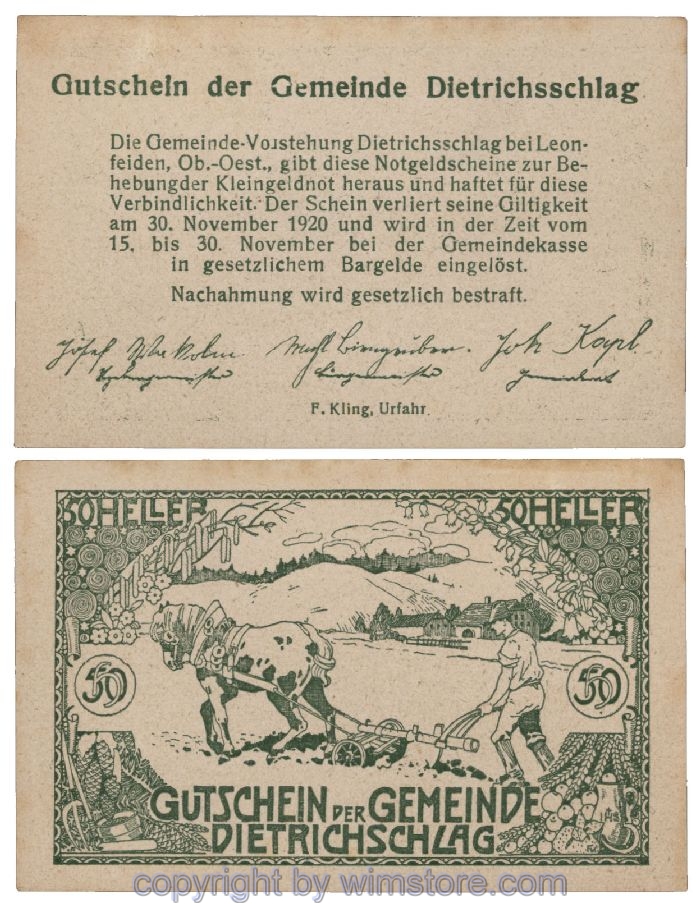 Gutschein der Gemeinde Dietrichsschlag
Die Gemeinde-Vorstehung Dietrichsschlag bei Leon-
feiden, Ob.-Oest., gibt diese Notgeldscheine zur Be-
hebungder Kleingeldnot heraus und haftet für diese
Verbindlichkeit. Der Schein verliert seine Giltigkeit
am 30. November 1920 und wird in der Zeit vom
15. bis 30. November bei der Gemeindekasse
in gesetzlichem Bargelde eingelöst.
Nachahmung wird gesetzlich bestraft.
Josef
Joh Kapl
Bürgermeister
Gemeinderat
F. Kling, Urfahr.
50 HELLER 50 HELLER
50 50
GUTSCHEIN DER GEMEINDE
DIETRICHSCHLAG
copyright by wimstore.com